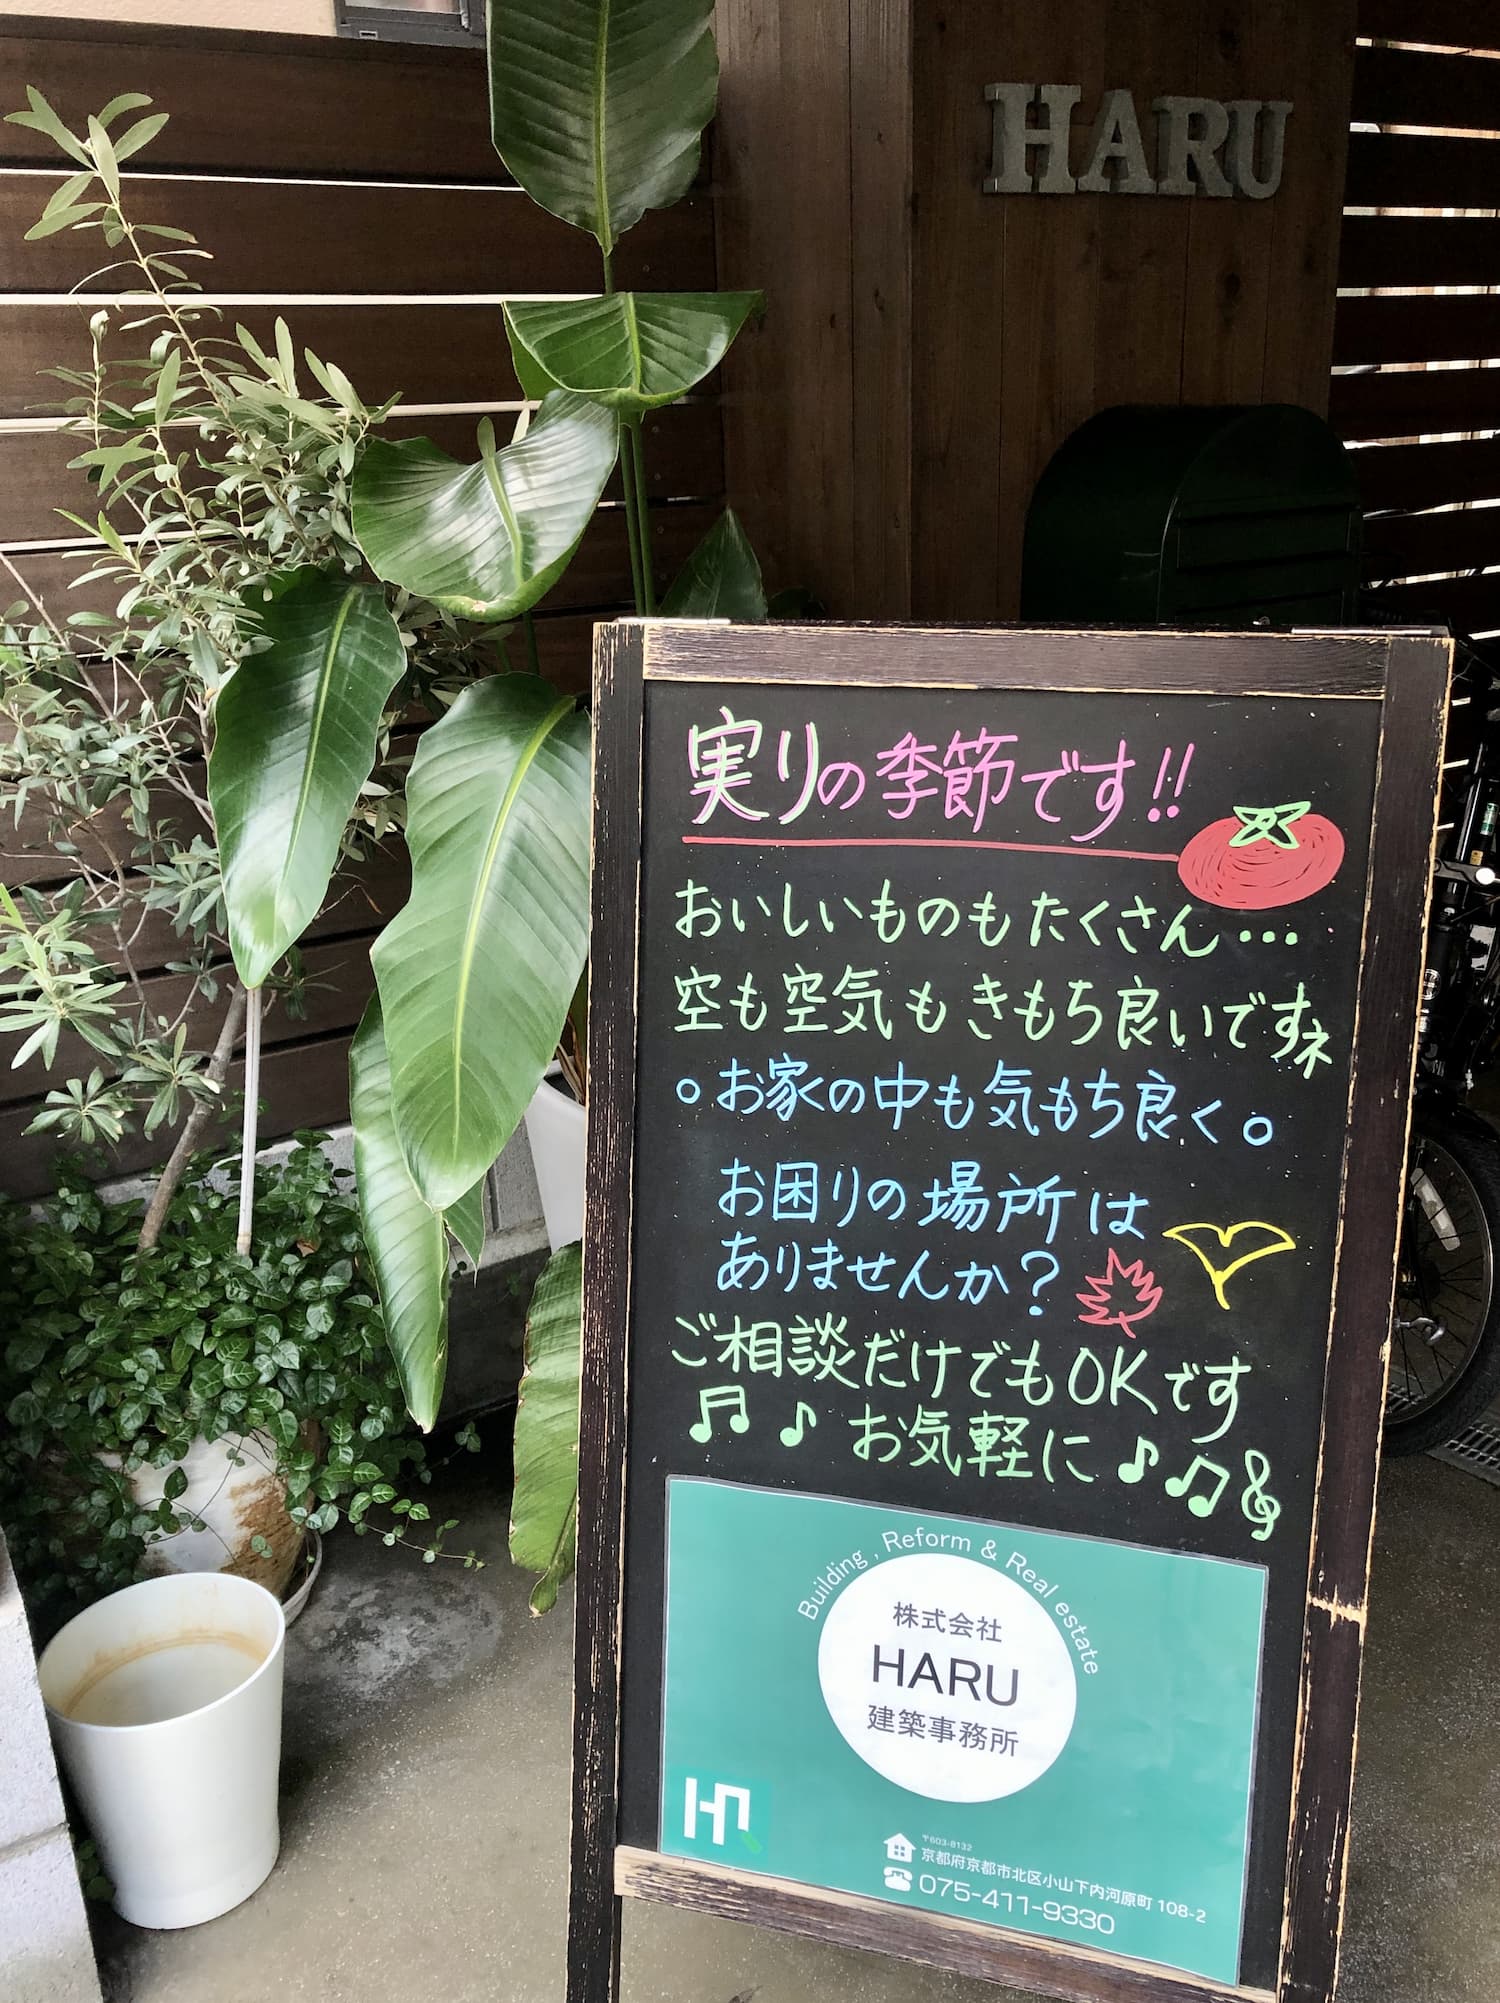 HARU
実りの季節です!!
おいしいものもたくさん…
空も空気もきもち良いですネ
。お家の中も気もち良く。
お困りの場所は
ありませんか?
ご相談だけでもOKです
♫ ♪ お気軽に ♪ ♫ 𝄞
Building , Reform & Real estate
株式会社
HARU
建築事務所
〒603-8132
京都府京都市北区小山下内河原町 108-2
075-411-9330